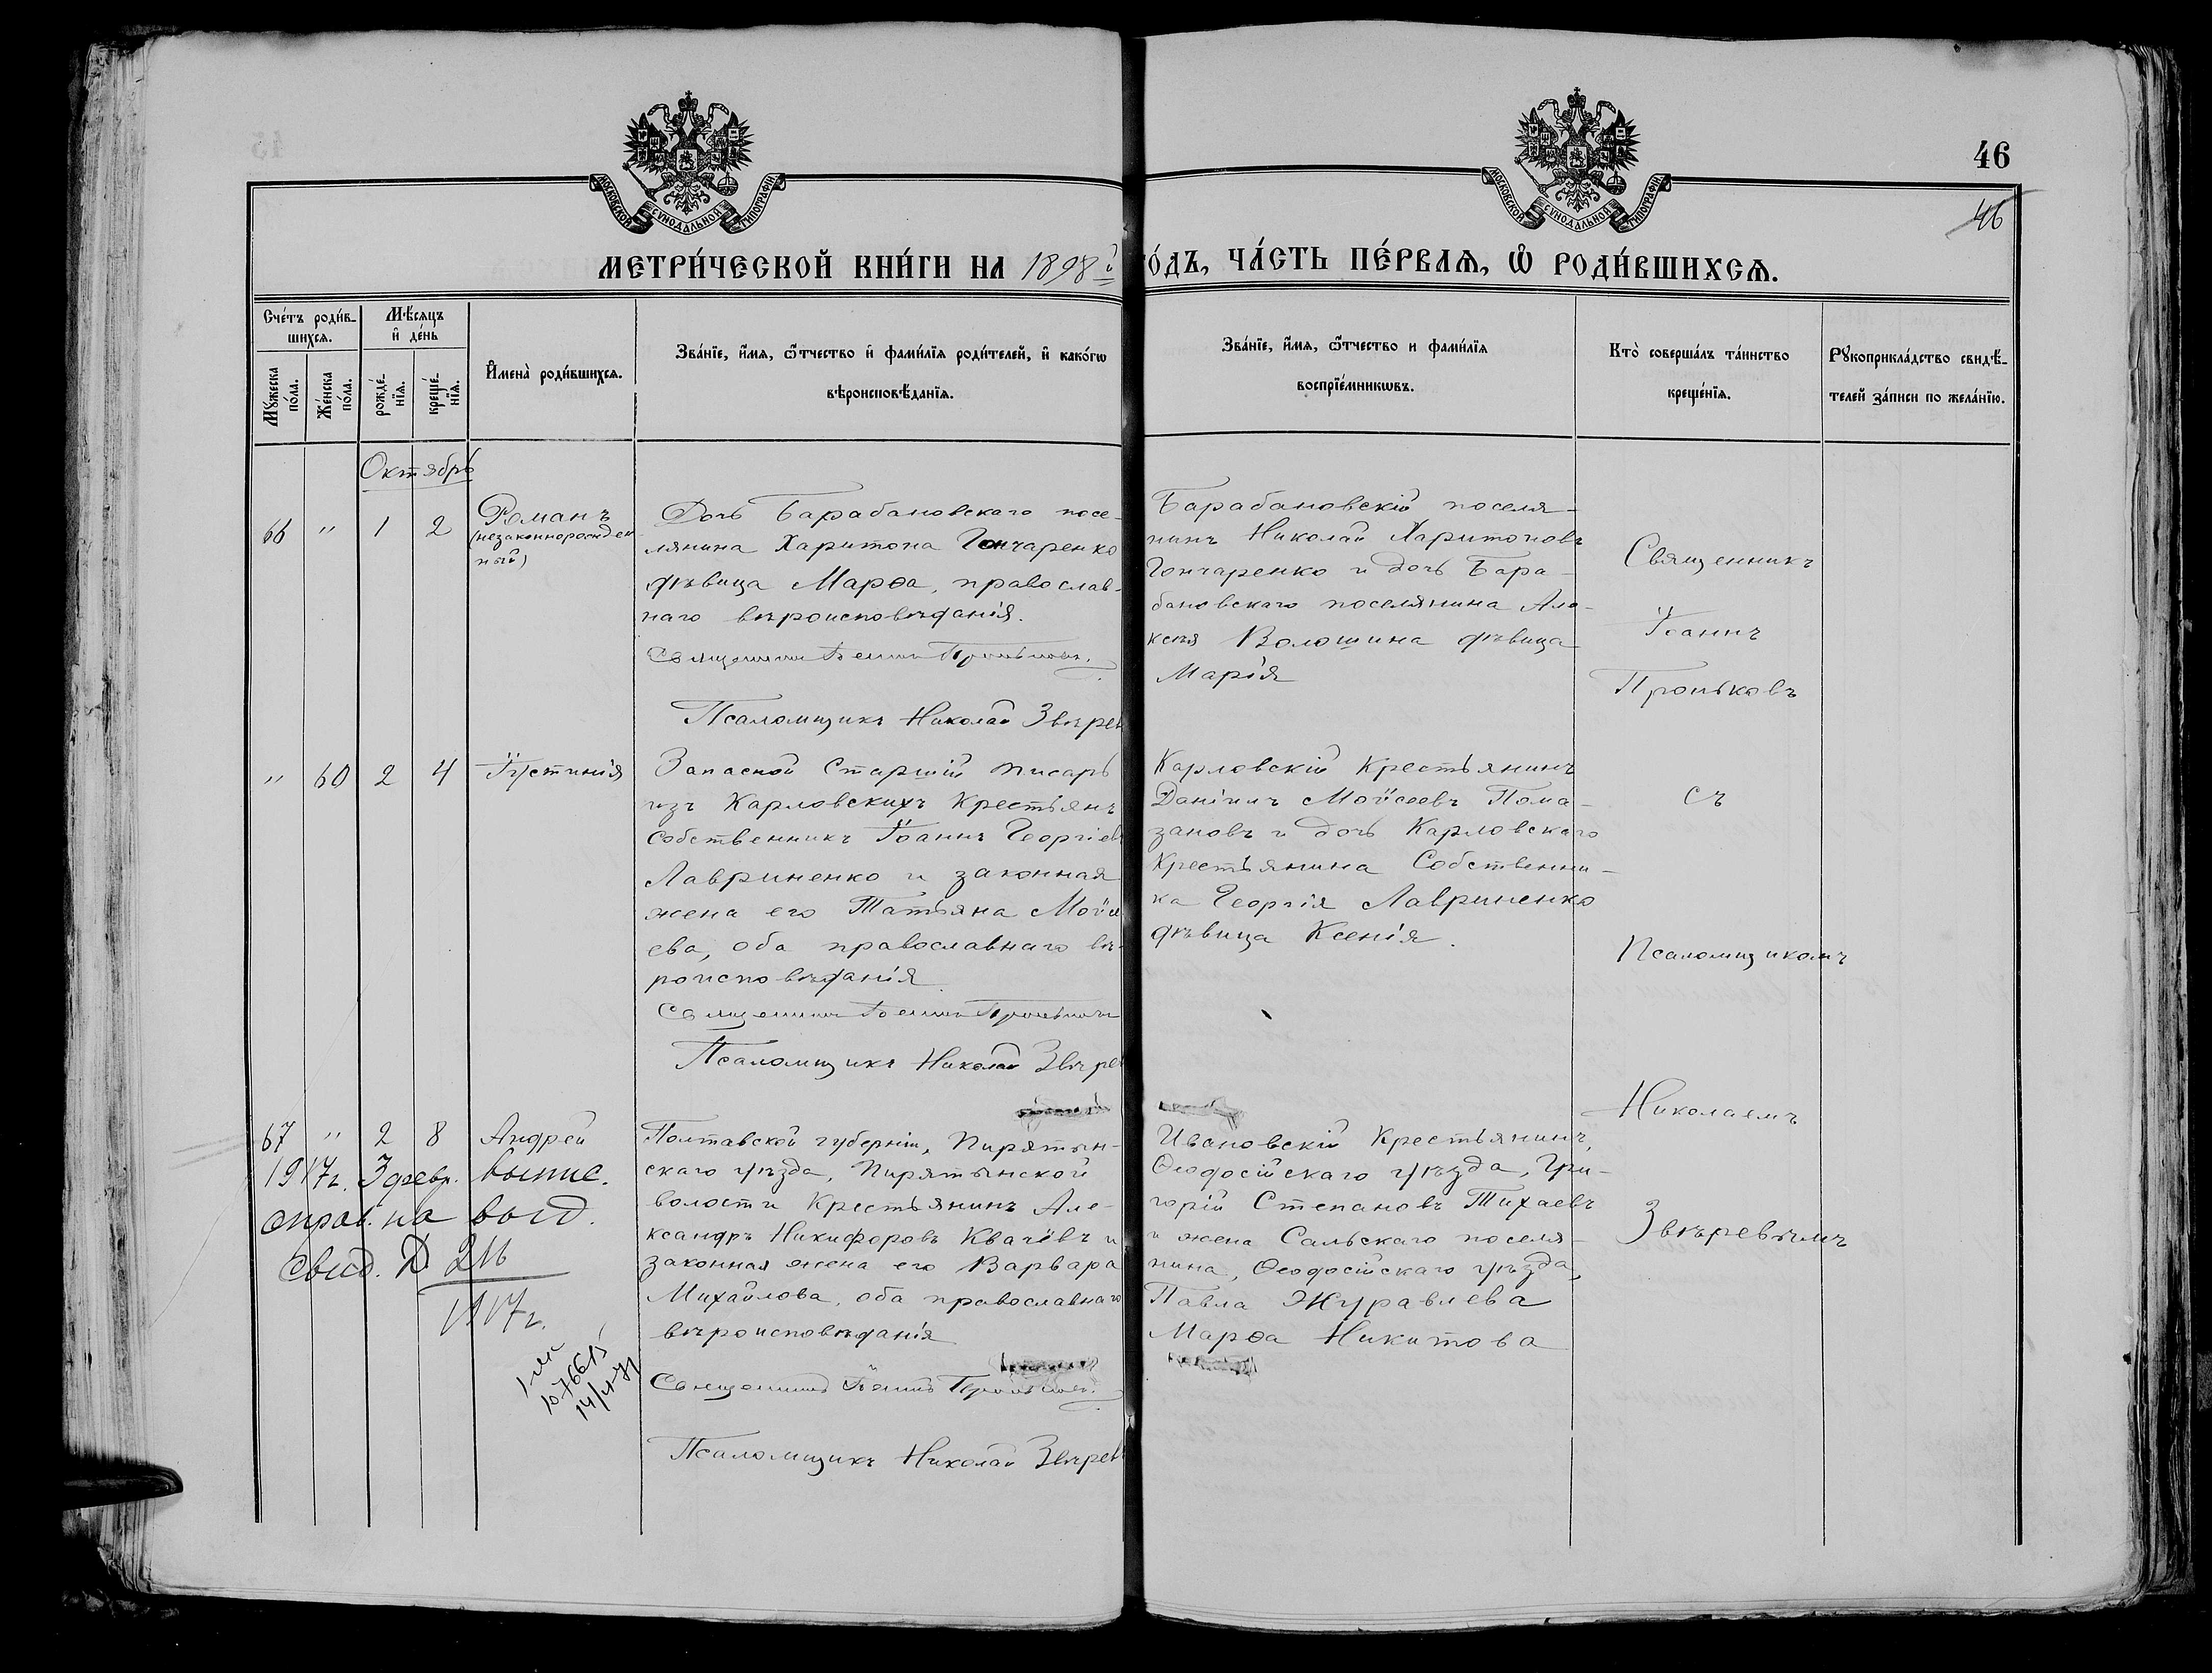 46
46
МОСКОВСКОЙ СУНОДАЛЬНОЙ ТИПОГРАФІИ
МОСКОВСКОЙ СУНОДАЛЬНОЙ ТИПОГРАФІИ
МЕТРИ́ЧЕСКОЙ КНИ́ГИ НА 1898й
О́ДЪ, ЧА́СТЬ ПЕ́РВАѦ, Ѡ РОДИ́ВШИХСѦ.
Сче́тъ роди́в-
шихся.
Мѣ́сяцъ
и҆ де́нь
Мꙋ́жеска
по́ла.
Же́нска
по́ла.
рожде́-
нїѧ.
креще́-
нїѧ.
И҆мена̀ роди́вшихсѧ.
Зва́нїе, и҆́мѧ, ѻ҆́тчество и҆ фами́лїѧ роди́телей, и҆ како́гѡ
вѣроисповѣ́данїѧ.
Зва́нїе, и҆́мѧ, ѻ҆́тчество и фами́лїѧ
воспрїе́мникѡвъ.
Кто̀ соверша́лъ та́инство
креще́нїѧ.
Рꙋкоприкла́дство свидѣ́-
телей за́писи по жела́нїю.
Октябрь
66 " 1 2 Романъ
(незаконнорожден
ный)
Дочь Барабановскаго посе-
лянина Харитона Гончаренко
дѣвица Марѳа, православ-
наго вѣроисповѣданія.
Священникъ Іоаннъ Проньковъ.
Псаломщикъ Николай Звѣрев
Барабановскій поселя-
нинъ Николай Харитоновъ
Гончаренко и дочь Бара-
бановскаго поселянина Але-
ксѣя Волошина дѣвица
Марія
Священникъ
Іоаннъ
Проньковъ
" 60 2 4 Іустинія
Запасной Старшій писарь
изъ Карловскихъ Крестьянъ
Собственникъ Іоаннъ Георгіевъ
Лавриненко и законная
жена его Татьяна Моѵсе
ева, оба православнаго вѣ-
роисповѣданія
Священникъ Іоаннъ Проньковъ
Псаломщикъ Николай Звѣрев
Карловскій Крестьянинъ
Даніилъ Моѵсеевъ Пома-
зановъ и дочь Карловскаго
Крестьянина Собственни-
ка Георгія Лавриненко
дѣвица Ксенія.
съ
Псаломщикомъ
Николаемъ
Звѣревымъ
67 " 2 8 Андрей
1917г. 3 февр. выпис.
справ. на выд.
свид. № 216
1917г.
Полтавской губерніи, Пирятин-
скаго уѣзда, Пирятынской
волости Крестьянинъ Але-
ксандръ Никифоровъ Квачёвъ и
законная жена его Варвара
Михайлова, оба православнаго
вѣроисповѣданія
Священникъ Іоаннъ Проньковъ.
Псаломщикъ Николай Звѣрев
Ивановскій Крестьянинъ,
Ѳеодосійскаго уѣзда, Гри-
горій Степановъ Тихаевъ
и жена Сальскаго поселя-
нина, Ѳеодосійскаго уѣзда,
Павла Журавлева
Марѳа Никитова